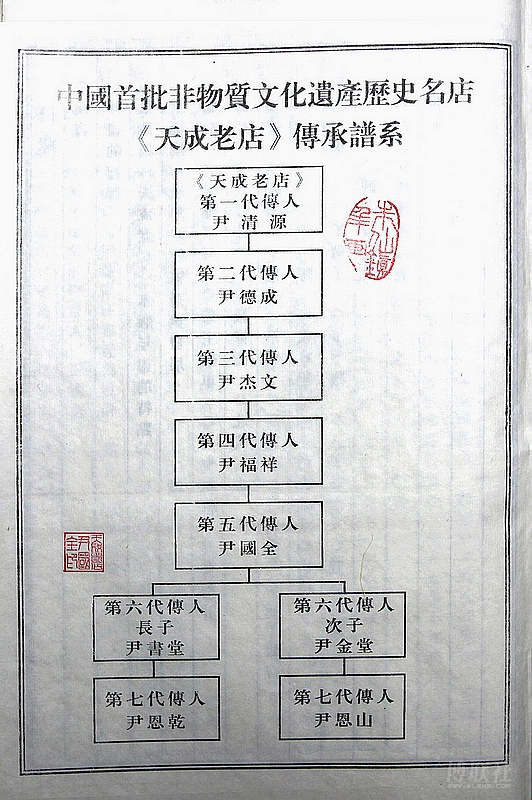 中國首批非物質文化遺產歷史名店
《天成老店》傳承譜系
《天成老店》
第一代傳人
尹清源
第二代傳人
尹德成
第三代傳人
尹杰文
第四代傳人
尹福祥
第五代傳人
尹國全
第六代傳人
長子
尹書堂
第六代傳人
次子
尹金堂
第七代傳人
尹恩乾
第七代傳人
尹恩山
博联社